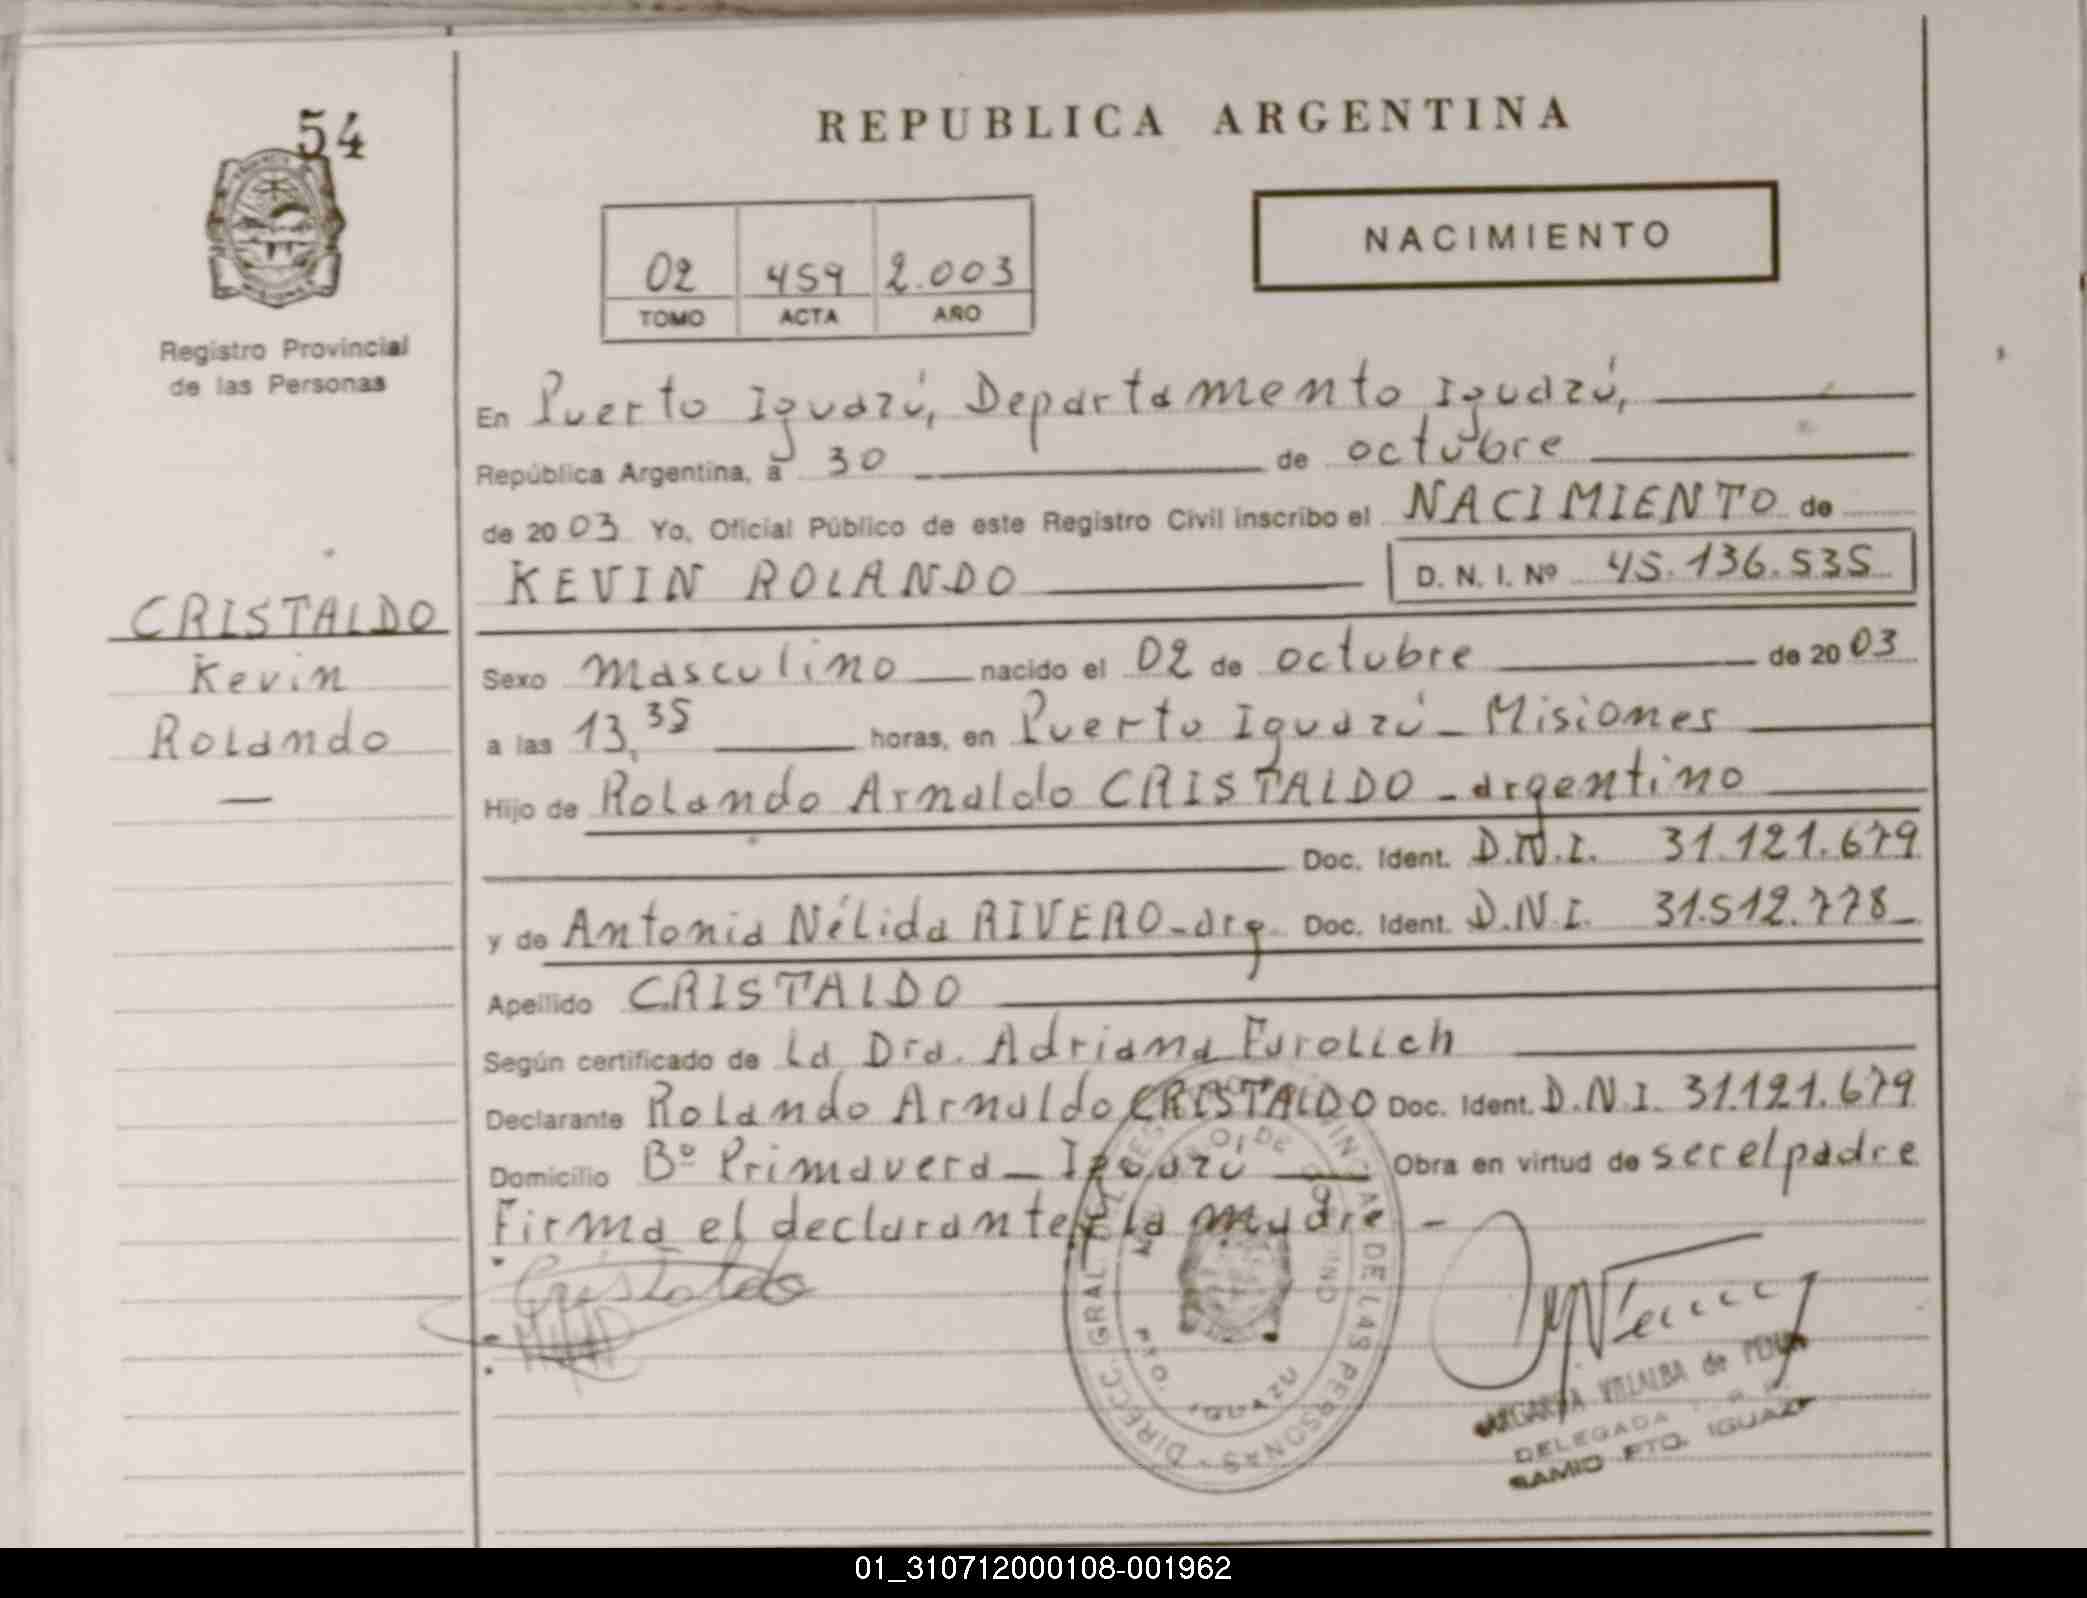 54
REPUBLICA ARGENTINA
NACIMIENTO
02 459 2.003
TOMO ACTA AÑO
Registro Provincial
de las Personas
En Puerto Iguazú, Departamento Iguazú,
República Argentina, a 30 de octubre
de 2003 Yo, Oficial Público de este Registro Civil inscribo el NACIMIENTO de
KEVIN ROLANDO D. N. I. Nº 45.136.535
CRISTALDO
Kevin
Rolando
Sexo masculino nacido el 02 de octubre de 2003
a las 13,35 horas, en Puerto Iguazú - Misiones
Hijo de Rolando Arnaldo CRISTALDO - argentino
Doc. Ident. D.N.I. 31.121.679
y de Antonia Nélida RIVERO - arg. Doc. Ident. D.N.I. 31.512.778
Apellido CRISTALDO
Según certificado de La Dra. Adriana
Declarante Rolando Arnaldo CRISTALDO Doc. Ident. D.N.I. 31.121.679
Domicilio Bº Primavera - Iguazú Obra en virtud de ser el padre
Firma el declarante y la madre -
Cristaldo
DIRECC. GRAL DE LAS PERSONAS
VILLALBA de
DELEGADA
PTO. IGUAZU
01_310712000108-001962